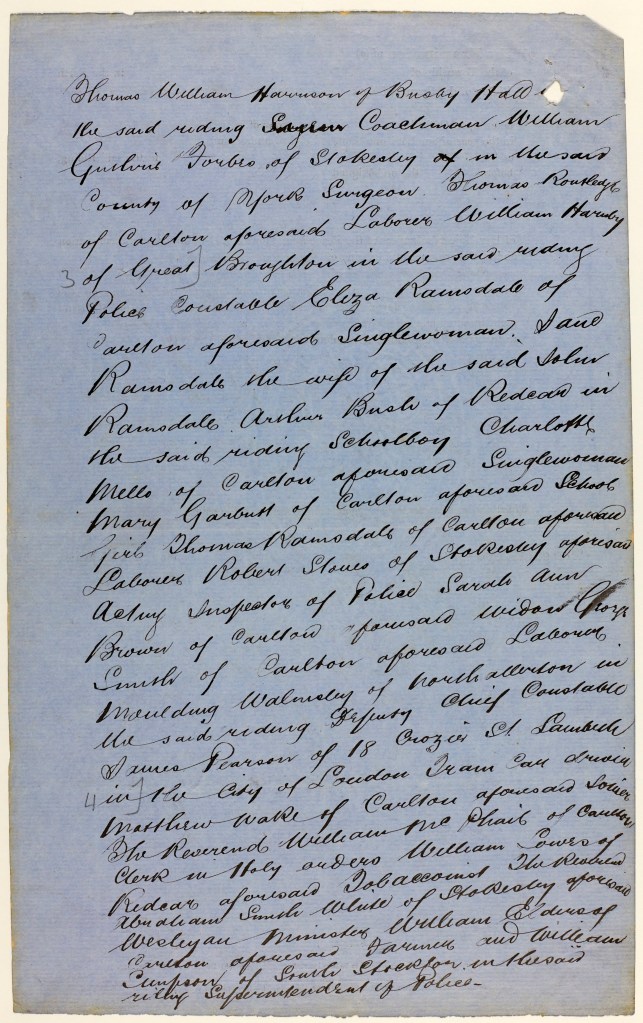 Thomas William Harrison of Busby Hall in
the said riding Coachman William
Guthrie Forbes of Stokesley in the said
County of York Surgeon Thomas Routledge
of Carlton aforesaid Laborer William Harnby
3 of Great] Broughton in the said riding
Police Constable Eliza Ramsdale of
Carlton aforesaid Singlewoman. Jane
Ramsdale the wife of the said John
Ramsdale Arthur Bush of Redcar in
the said riding Schoolboy Charlotte
Mello of Carlton aforesaid Singlewoman
Mary Garbutt of Carlton aforesaid School
Girl Thomas Ramsdale of Carlton aforesaid
Laborer Robert Stones of Stokesley aforesaid
Acting Inspector of Police Sarah Ann
Brown of Carlton aforesaid Widow George
Smith of Carlton aforesaid Laborer
Moulding Walmsley of Northallerton in
the said riding Deputy Chief Constable
James Pearson of 18 Crozier St Lambeth
4 in] the City of London Tram Car driver
Matthew Wake of Carlton aforesaid
The Reverend William Mc Phail of Carlton
Clerk in Holy orders William of
Redcar aforesaid Tobacconist The Reverend
Abraham Smith White of Stokesley aforesaid
Wesleyan Minister William Elders of
Carlton aforesaid Farmer and William
Simpson of South Stockton in the said
riding Superintendent of Police -